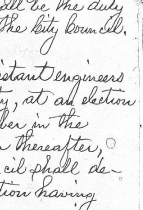 all be the duty
the City Council.
istant engineers
ty, at an election
ber in the
r thereafter,
cil shall de-
tion having